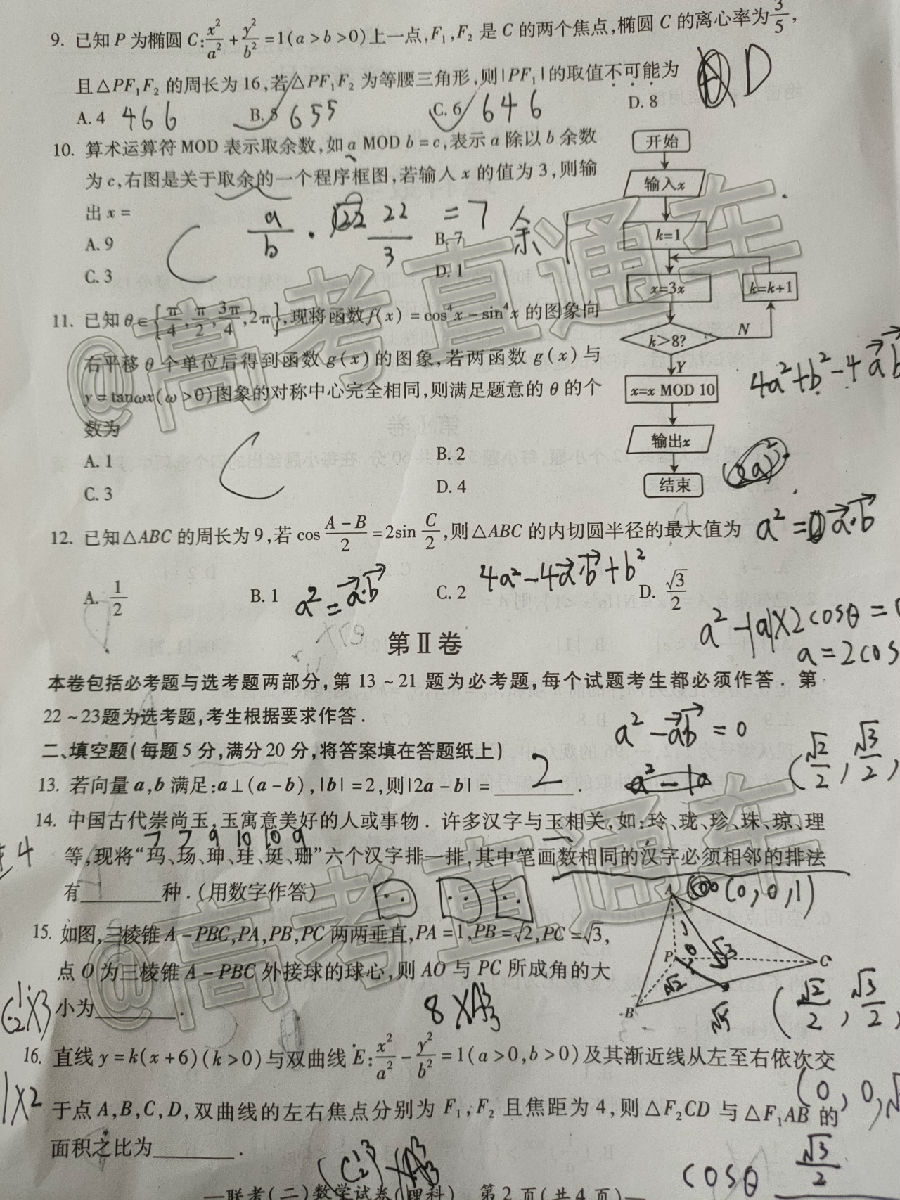 9. 已知 P 为椭圆 C:x²/a²+y²/b²=1(a>b>0)上一点,F₁,F₂ 是 C 的两个焦点,椭圆 C 的离心率为3/5,
且△PF₁F₂ 的周长为 16,若△PF₁F₂ 为等腰三角形,则|PF₁|的取值不可能为
D
A. 4 466 B. 5 655 C. 6 646 D. 8
10. 算术运算符 MOD 表示取余数,如 a MOD b=c,表示 a 除以 b 余数
为 c,右图是关于取余的一个程序框图,若输入 x 的值为 3,则输
出 x=
a/b 22/3 =7 余
A. 9 B. 7
C. 3 D. 1
C
开始
输入x
k=1
x=3x
k=k+1
k>8?
N
Y
x=x MOD 10
输出x
结束
11. 已知 θ∈{π/4,π/2,3π/4,2π},现将函数 f(x)=cos⁴x-sin⁴x 的图象向
右平移 θ 个单位后得到函数 g(x)的图象,若两函数 g(x)与
y=tanωx(ω>0)图象的对称中心完全相同,则满足题意的 θ 的个
数为
A. 1 B. 2
C. 3 D. 4
C
4a²+b²-4ab
12. 已知△ABC 的周长为 9,若 cos (A-B)/2=2sin C/2,则△ABC 的内切圆半径的最大值为
a²=a·b
A. 1/2 B. 1 C. 2 D. √3/2
a²=a·b
4a²-4a·b+b²
第Ⅱ卷
本卷包括必考题与选考题两部分,第 13~21 题为必考题,每个试题考生都必须作答. 第
22~23题为选考题,考生根据要求作答.
a²-ab=0
二、填空题(每题 5 分,满分 20 分,将答案填在答题纸上)
13. 若向量 a,b 满足:a⊥(a-b),|b|=2,则|2a-b|=________. 2
14. 中国古代崇尚玉,玉寓意美好的人或事物. 许多汉字与玉相关,如:玲、珑、珍、珠、琼、理
7 7 9 10 10 9
等,现将“玛、玚、珅、珪、珽、珊”六个汉字排一排,其中笔画数相同的汉字必须相邻的排法
有________种.(用数字作答)
15. 如图,三棱锥 A-PBC,PA,PB,PC 两两垂直,PA=1,PB=√2,PC=√3,
点 O 为三棱锥 A-PBC 外接球的球心,则 AO 与 PC 所成角的大
小为________.
A
(0,0,1)
P
C
B
√2
√3
16. 直线 y=k(x+6)(k>0)与双曲线 E:x²/a²-y²/b²=1(a>0,b>0)及其渐近线从左至右依次交
于点 A,B,C,D,双曲线的左右焦点分别为 F₁,F₂ 且焦距为 4,则△F₂CD 与△F₁AB 的
面积之比为________.
cosθ √3/2
—联考(二)数学试卷(理科) 第 2 页(共 4 页)—
@高考直通车
@高考直通车